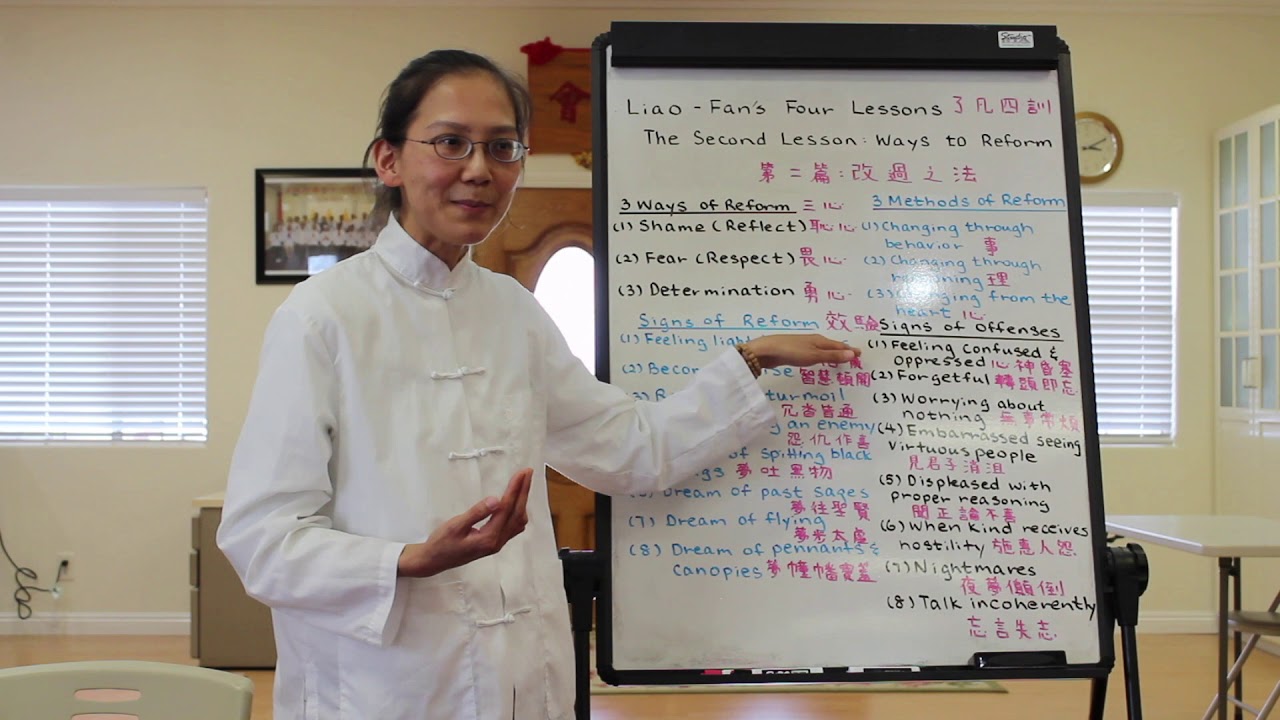 Liao-Fan's Four Lessons 了凡四訓
The Second Lesson: Ways to Reform
第二篇:改過之法
3 Ways of Reform 三心
(1) Shame (Reflect) 恥心
(2) Fear (Respect) 畏心
(3) Determination 勇心
3 Methods of Reform
(1) Changing through
behavior 事
(2) Changing through
理
(3) from the
heart 心
Signs of Reform 效驗
(1) Feeling
(2)
智慧頓開
(3) turmoil
冗沓皆通
an enemy
怨仇作喜
of spitting black
夢吐黑物
Dream of past sages
夢往聖賢
(7) Dream of flying
夢步太虛
(8) Dream of pennants &
canopies 夢幢幡寶蓋
Signs of Offenses
(1) Feeling confused &
oppressed 心神昏塞
(2) Forgetful 轉頭即忘
(3) Worrying about
nothing 無事常煩
(4) Embarrassed seeing
virtuous people
見君子消沮
(5) Displeased with
proper reasoning
聞正論不喜
(6) When kind receives
hostility 施惠人怨
(7) Nightmares
夜夢顛倒
(8) Talk incoherently
忘言失志